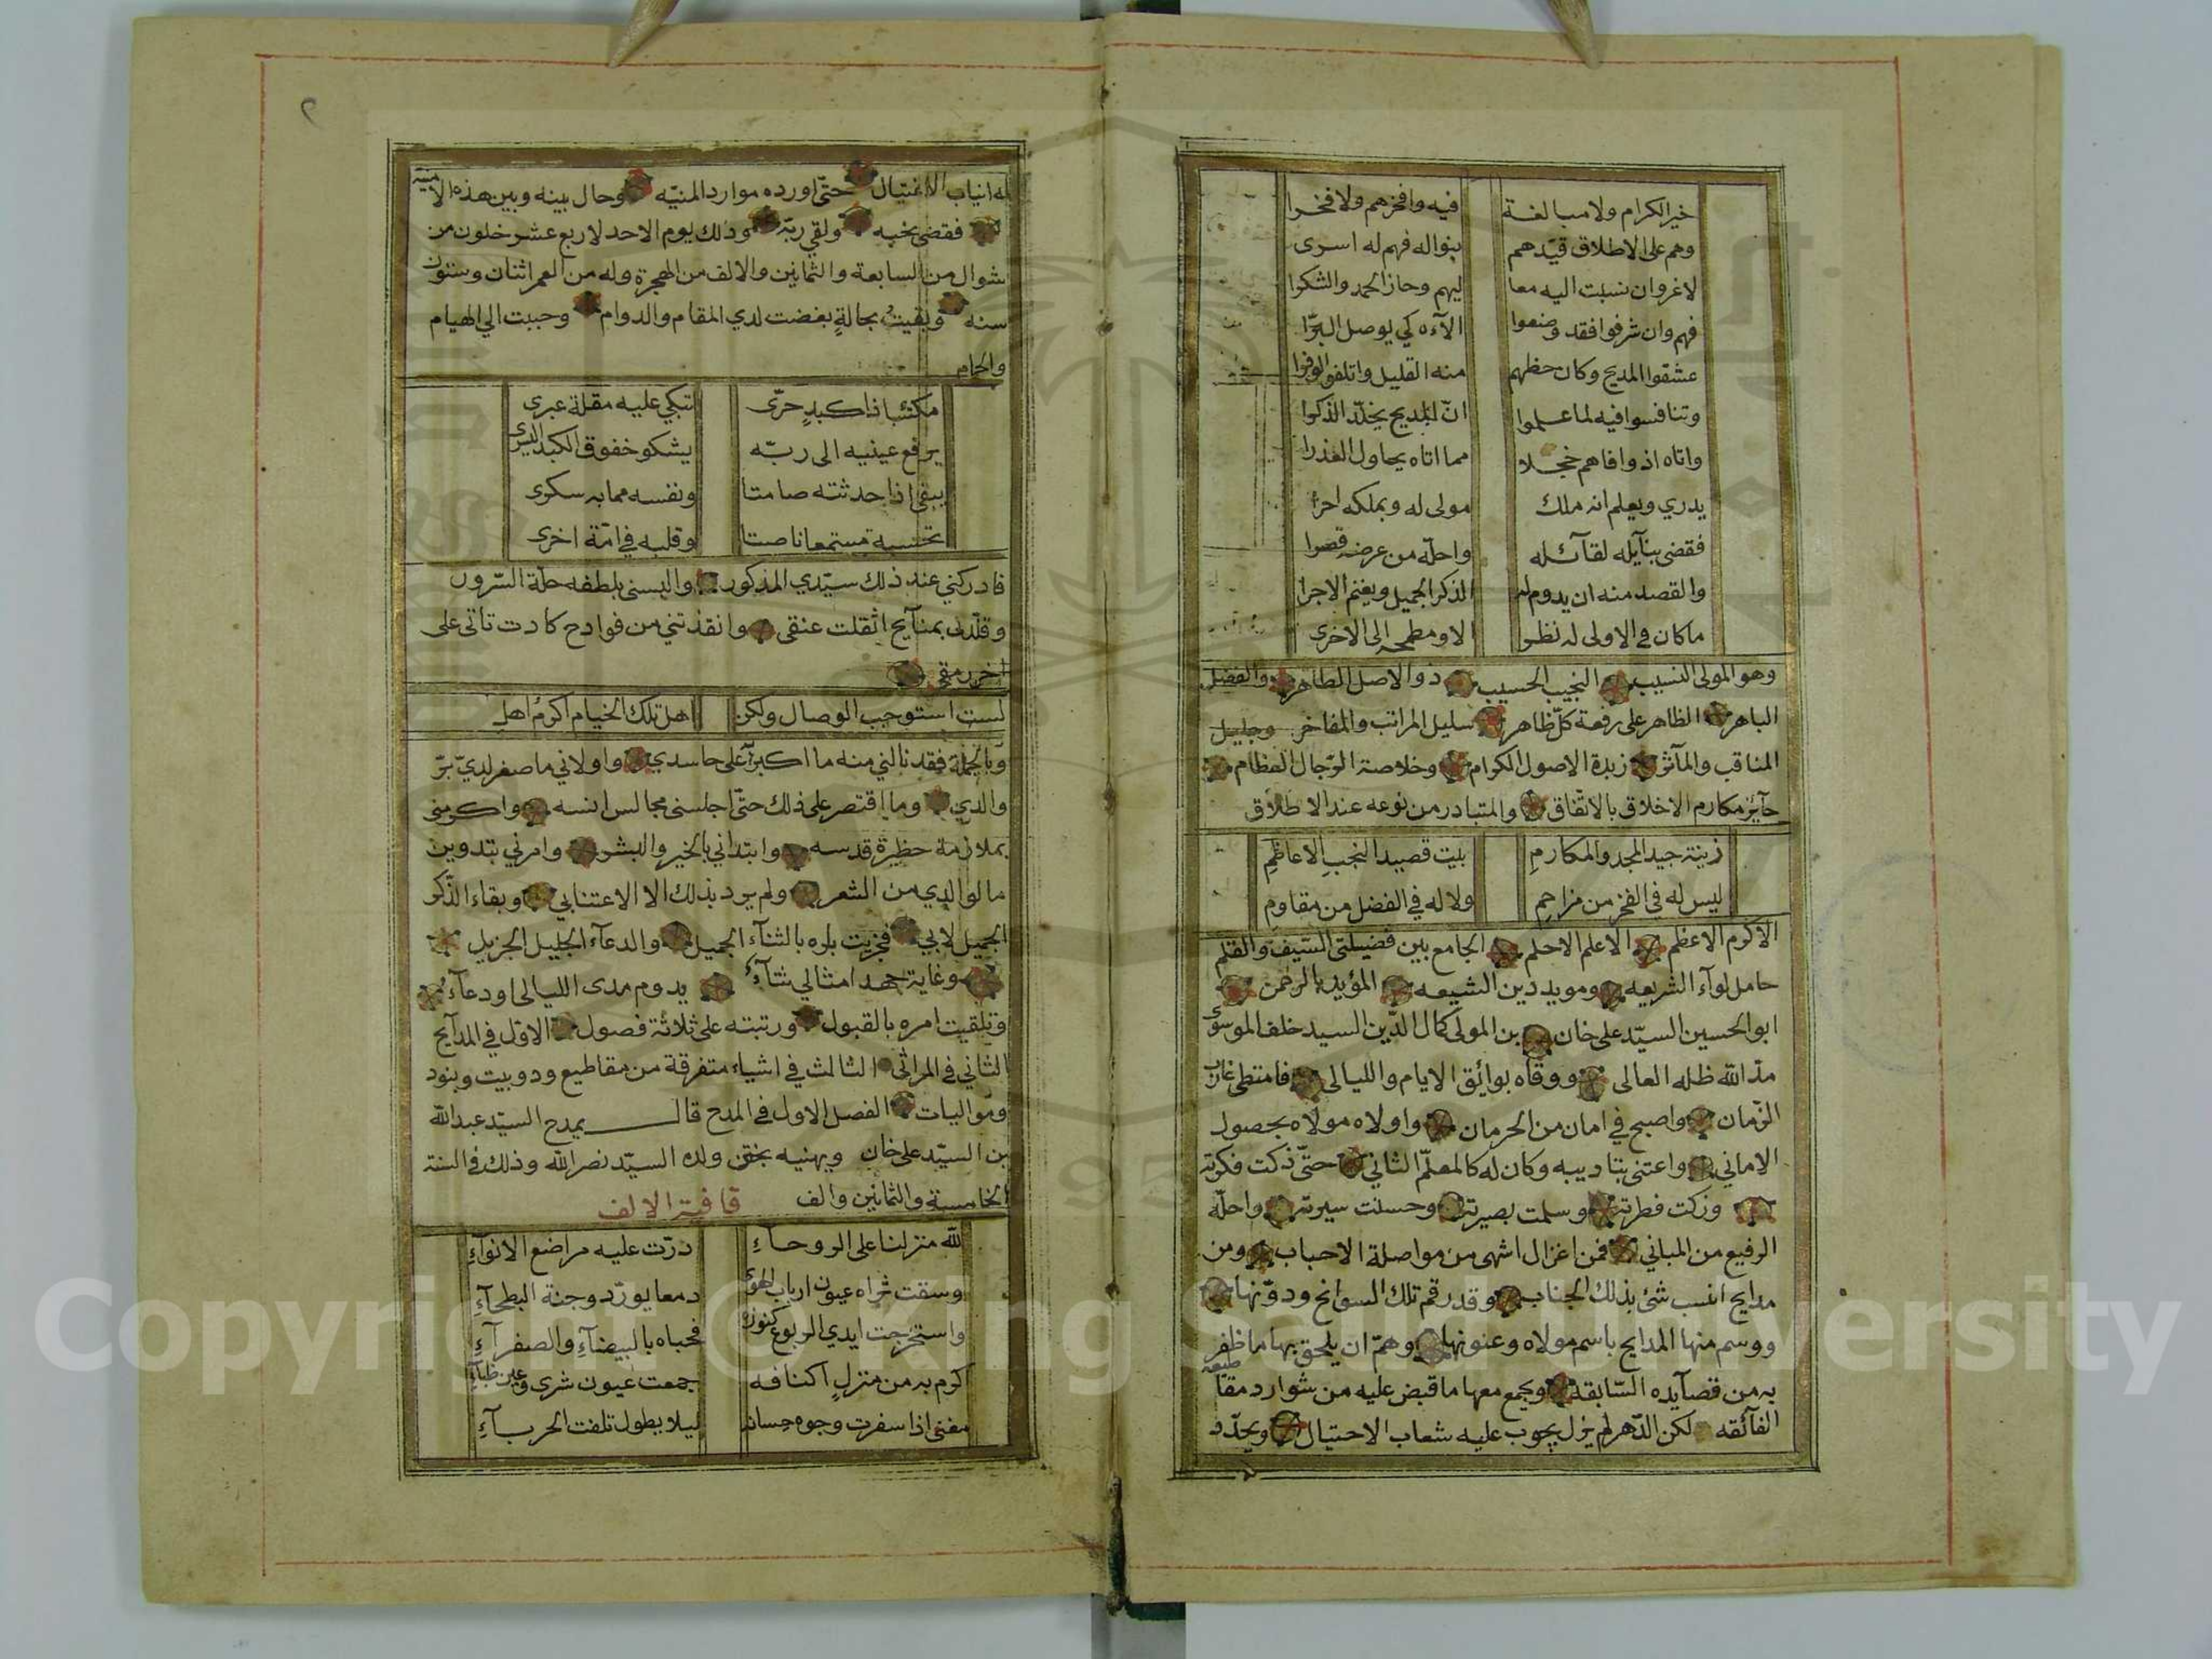 خير الكرام ولا مبالغة فيه وافخرهم ولا فخرا
وهم على الاطلاق قيّدهم بنواله فهم له اسرى
لا غروان نسبت اليه معا ليهم وحاز الحمد والشكرا
فهم وان شرفوا فقد وضعوا الآءه كي يوصل البرّا
عشقوا المديح وكان حظهم منه القليل واتلفوا الوفرا
وتنافسوا فيه لما علموا انّ المديح يخلّد الذكرا
واتاه اذ وافاهم خجلا مما اتاه يحاول العذرا
يدري ويعلم انه ملك مولى له وبملكه احرا
فقضى بنآيله لقآئله واحلّه من عرضه قصرا
والقصد منه ان يدوم له الذكر الجميل ويغنم الاجرا
ما كان في الاولى له نظر الا ومطمحه الى الاخرى
وهو المولى النسيب النجيب الحسيب ذو الاصل الطاهر والفضل
الباهر الظاهر على رفعة كلّ ظاهر سليل المراتب والمفاخر وجليل
المناقب والمآثر زبدة الاصول الكرام وخلاصة الرّجال العظام
حآيز مكارم الاخلاق بالاتّفاق والمتبادر من نوعه عند الاطلاق
زينة جيد المجد والمكارمِ بيت قصيد النجبِ الاعاظمِ
ليس له في الفخر من مزاحمِ ولا له في الفضل من مقاومِ
الاكرم الاعظم الاعلم الاحلم الجامع بين فضيلتي السّيف والقلم
حامل لوآء الشريعه ومويد دين الشيعه المؤيد بالرحمن
ابو الحسين السيّد على خان بن المولى كمال الدّين السيد خلف الموسوى
مدّ الله ظله العالى ووقاه بوائق الايام والليالى فامتطى غارب
الزّمان واصبح في امان من الحرمان واولاه مولاه بحصول
الاماني واعتنى بتاديبه وكان له كالمعلّم الثاني حتّى ذكت فكرته
وزكت فطرته وسلمت بصيرته وحسنت سيرته واحلّه
الرفيع من المباني فمن اغزال اشهى من مواصلة الاحباب ومن
مدايح انسب شئ بذلك الجناب وقد رقم تلك السوانح ودوّنها
ووسم منها المدايح باسم مولاه وعنونها وهمّ ان يلحق بها ما ظفر
به من قصآيده السّابقة ويجمع معها ما قبض عليه من شوارد مقاطيعه
الفآئقه لكن الدّهر لم يزل يجوب عليه شعاب الاحتيال ويحدّد
٢
له انياب الاغتيال حتّى اورده موارد المنيّه وحال بينه وبين هذه الامنيه
فقضى نحبه ولقي ربّه وذلك يوم الاحد لاربع عشر خلون من
شوال من السابعة والثمانين والالف من الهجرة وله من العمر اثنان وستون
سنه وبقيتُ بحالةٍ بغضت لدي المقام والدوام وحببت الي الهيام
والحمام
مكتئبا ذا كبدٍ حرّى تبكي عليه مقلة عبرى
يرفع عينيه الى ربّه يشكو خفوق الكبد اليسرى
يبقى اذا حدثته صامتا ونفسه مما به سكرى
تحسبه مستمعا ناصتا وقلبه في امّة اخرى
فادركني عند ذلك سيّدي المذكور والبسنى بلطفه حلّة السّرور
وقلّدنى بمنآيح اثقلت عنقى وانقذتني من فوادح كادت تاتى على
اخر رمقى
لست استوجب الوصال ولكن اهل تلك الخيام اكرمُ اهلِ
وبالجملة فقد نالني منه ما اكبرّ على حاسدي واولاني ما صغر لديّ برّ
والدي وما اقتصر على ذلك حتّى اجلسنى مجالس انسه واكرمنى
بملازمة حظيرة قدسه وابتداني بالخير والبشر وامرني بتدوين
ما لوالدي من الشعر ولم يرد بذلك الا الاعتنابي وبقاء الذّكر
الجميل لابي فجزيت باره بالثنآء الجميل والدعآء الجليل الجزيل
وغاية جهد امثالي ثنآءُ يدوم مدى الليالى او دعآءُ
وتلقيت امره بالقبول ورتبته على ثلاثة فصول الاوّل في المدآيح
الثاني في المراثى الثالث في اشياء متفرقة من مقاطيع ودوبيت وبنود
ومواليات الفصل الاول في المدح قال يمدح السيّد عبد الله
بن السيّد على خان ويهنيه بختن ولده السيّد نصر الله وذلك في السنة
الخامسة والثمانين والف قافية الالف
لله منزلنا على الروحآءِ درّت عليه مراضع الانوآءِ
وسقت ثراه عيون ارباب الهوى دمعا يورّد وجنة البطحآءِ
واستخرجت ايدي الربوع كنوزه فحباه بالبيضآءِ والصفرآءِ
اكرم به من منزلٍ اكنافه جمعت عيون شرى وعين ظبآءِ
مغنى اذا سفرت وجوه حسانه ليلا يطول تلفت الحربآءِ